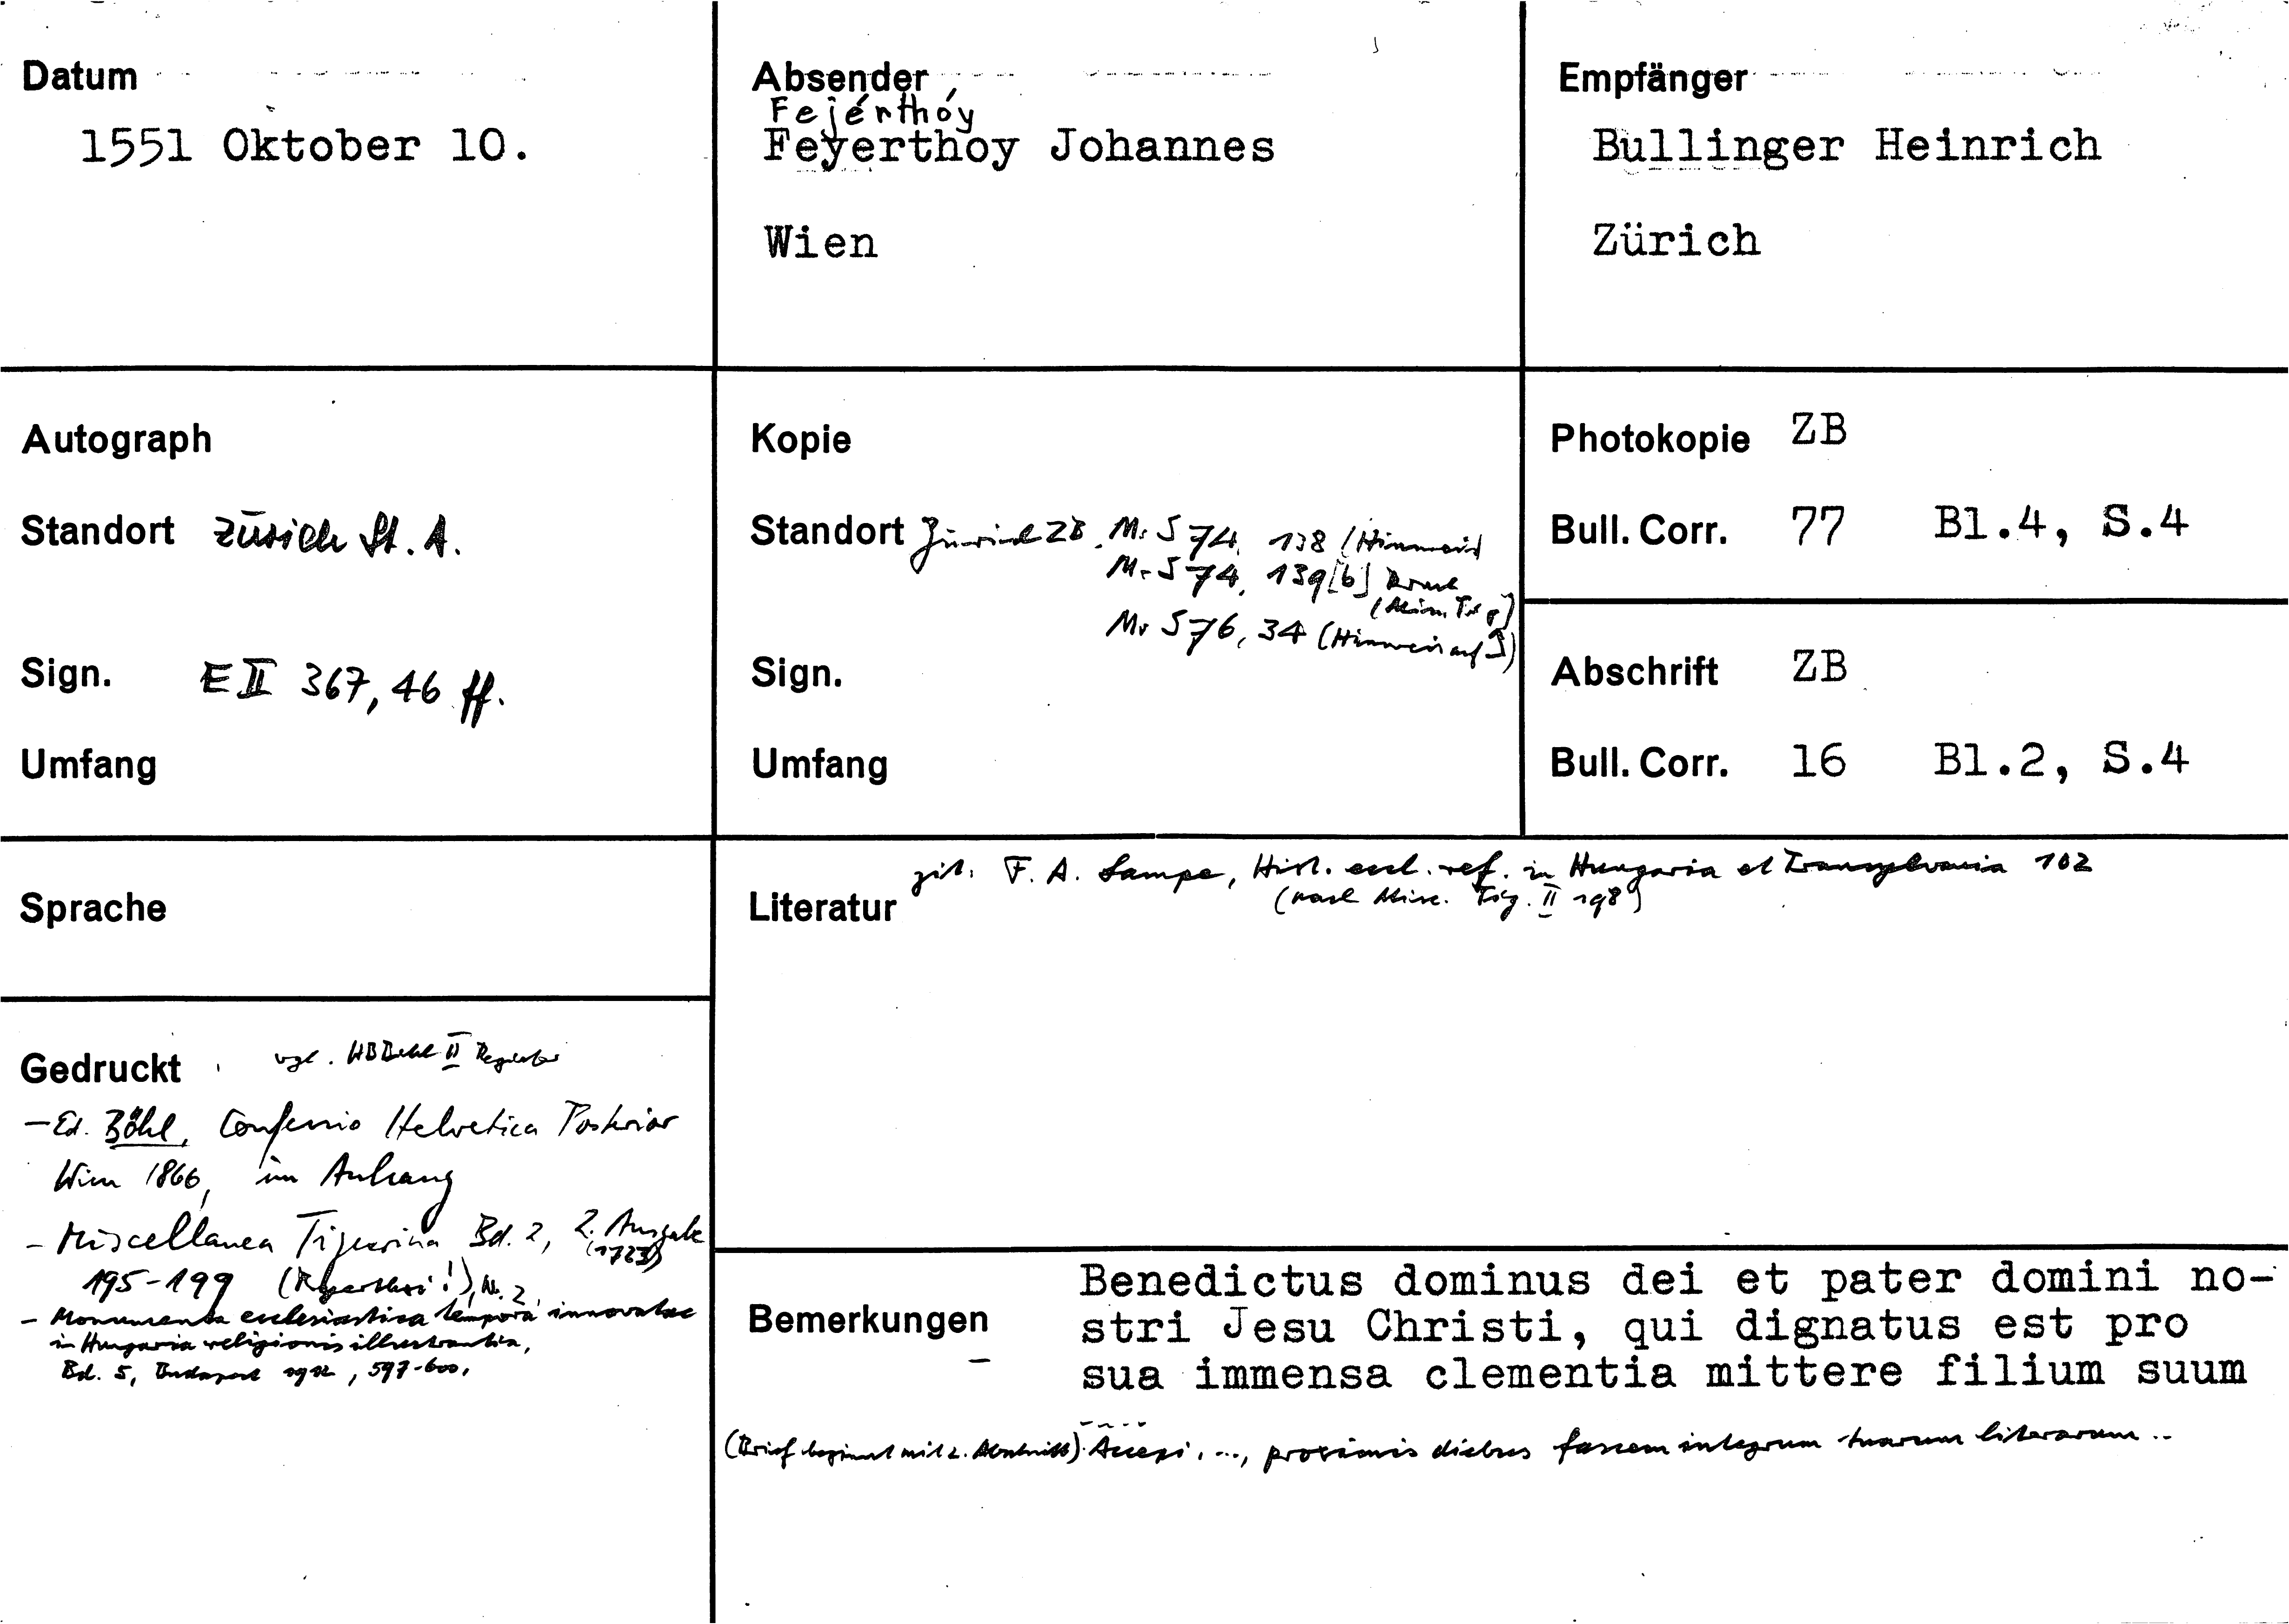 Datum
1551 Oktober 10.
Absender
Fejérthóy
Feyerthoy Johannes
Wien
Empfänger
Bullinger Heinrich
Zürich
Autograph
Standort Zürich St. A.
Sign. E II 367, 46 ff.
Umfang
Kopie
Standort Zürich ZB, Ms S 74, 138 (Hinweis)
Ms S 74, 139[b] Druck
(Misc. Tig)
Ms S 76, 34 (Hinweis auf
Sign.
Umfang
Photokopie ZB
Bull. Corr. 77 Bl.4, S.4
Abschrift ZB
Bull. Corr. 16 Bl.2, S.4
Sprache
Literatur zit. F. A. Lampe, Hist. eccl. ref. in Hungaria et Transylvania 102
(nach Misc. Tig. II 198)
Gedruckt vgl. HBBibl II Register
- Ed. Böhl, Confessio Helvetica Posterior
Wien 1866, im Anhang
- Miscellanea Tigurina Bd. 2, 2. Ausgabe
(1723)
195-199 (Feyerthoi!), Nr. 2
- Monumenta ecclesiastica tempora innovatae
in Hungaria religionis illustrantia,
Bd. 5, Budapest 1912, 597-600.
Bemerkungen
Benedictus dominus dei et pater domini no-
stri Jesu Christi, qui dignatus est pro
sua immensa clementia mittere filium suum
(Brief beginnt mit 2. Abschnitt) Accepi, ..., proximis diebus fascem integrum tuarum literarum ..